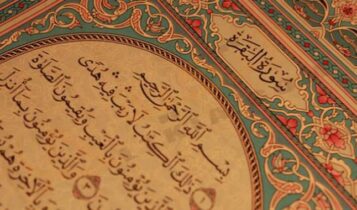 سُورَةُ الْبَقَرَةِ
بِسْمِ اللَّهِ الرَّحْمَٰنِ الرَّحِيمِ
ذَٰلِكَ الْكِتَٰبُ لَا رَيْبَ فِيهِ هُدًى
يُؤْمِنُونَ بِالْغَيْبِ وَيُقِيمُونَ الصَّلَوٰةَ
وَالَّذِينَ يُؤْمِنُونَ بِمَا أُنزِلَ
وَبِالْآخِرَةِ هُمْ